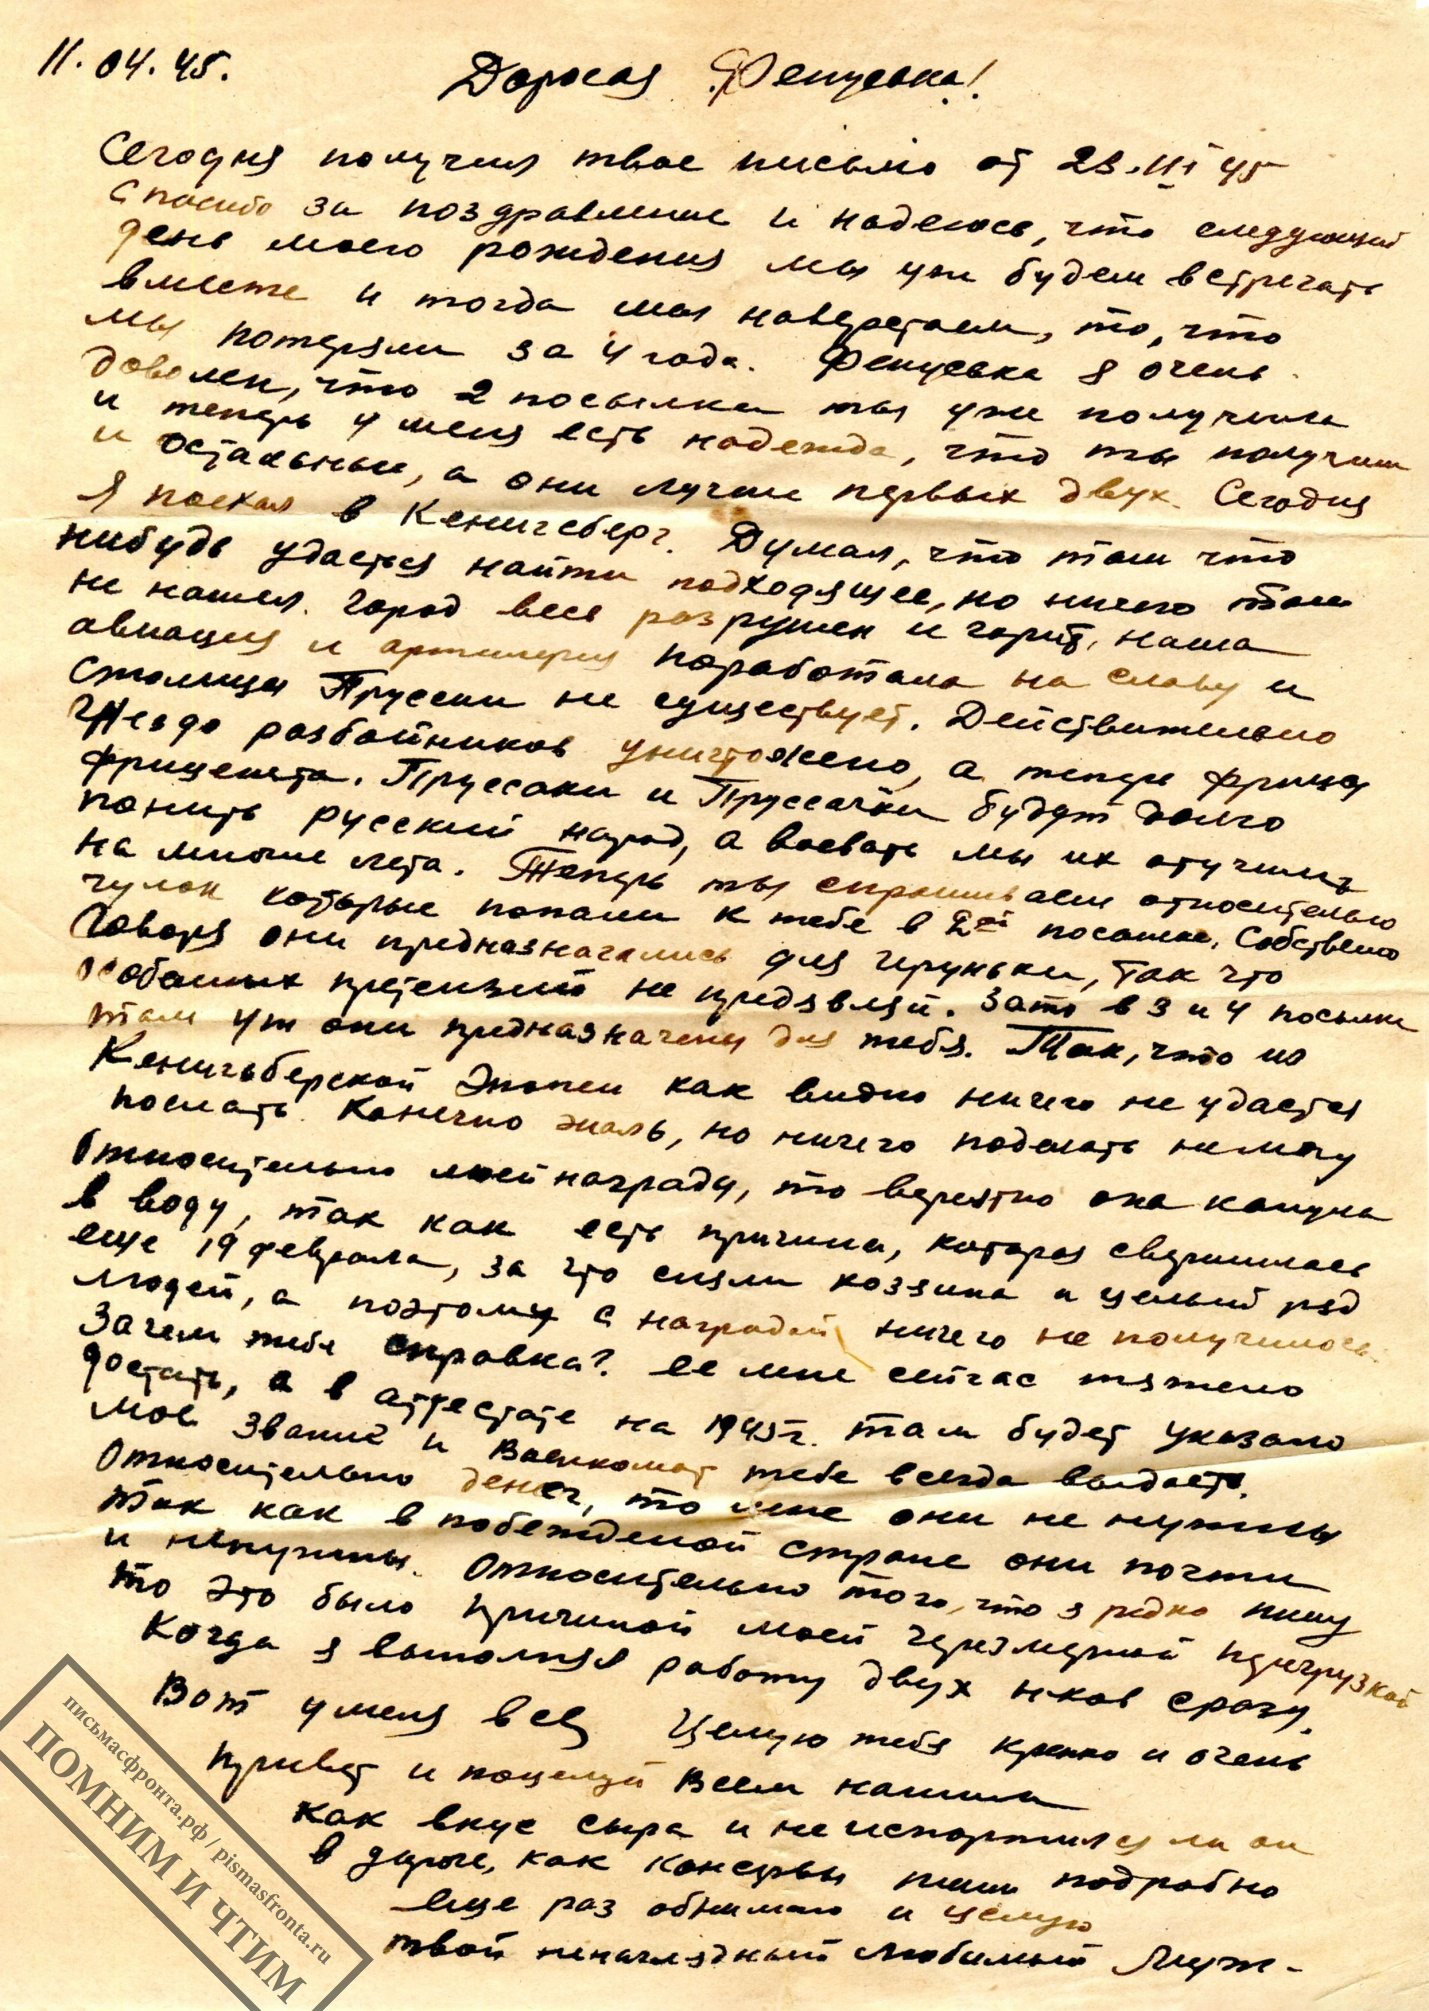 11.04.45.
Дорогая Фенуська!
Сегодня получил твое письмо от 23.III 45
Спасибо за поздравление и надеюсь, что следующий
день моего рождения мы уж будем встречать
вместе и тогда мы наверстаем, то, что
мы потеряли за 4 года. Фенуська я очень
доволен, что 2 посылки ты уже получила
и теперь у меня есть надежда, что ты получиш
и остальные, а они лучше первых двух. Сегодня
я поехал в Кенигсберг. Думал, что там что
нибудь удастся найти подходящее, но ничего там
не нашел. Город весь разрушен и горит, наша
авиация и артилерия поработала на славу и
столицы Пруссии не существует. Действительно
Гнездо разбойников уничтожено, а теперь фрицы
фриценята. Пруссаки и Пруссачки будут долго
помнить русский народ, а воевать мы их отучили
на многие лета. Теперь ты спрашиваеш относительно
чулок которые попали к тебе в 2ой посылке, Собственно
Говоря они предназначались для Ируньки, так что
особенных претензий не предявляй. Зато в 3 и 4 посылке
там уж они предназначены для тебя. Так, что из
Кенигсберской Эпопеи как видно ничего не удастся
послать. Конечно жаль, но ничего поделать не могу
Относительно моей награды, то вероятно она канула
в воду, так как есть причина, которая свершилась
еще 19 февраля, за что сняли хозяина и целый ряд
людей, а поэтому с наградой ничего не получилось.
Зачем тебе справка? ее мне сейчас тяжело
достать, а в аттестате на 1945г. там будет указано
мое звание и Военкомат тебе всегда выдаст.
Относительно денег, то мне они не нужны
так как в побежденой стране они почти
и ненужны. Относительно того, что я редко пишу
то это было причиной моей чрезмерной нагрузкой
Когда я выполнял работу двух н-ков сразу.
Вот у меня все Целую тебя крепко и очень
Привет и поцелуй Всем нашим
Как вкус сыра и не испортился ли он
в дороге, как консервы пиши подробно
еще раз обнимаю и целую
твой ненаглядный любимый Муж-
письмасфронта.рф / pismasfronta.ru
ПОМНИМ И ЧТИМ